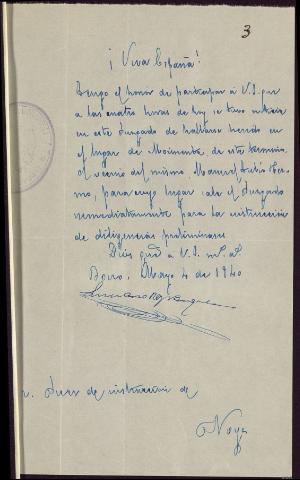 3
¡Viva España!
Tengo el honor de participar á V.S. que
a las cuatro horas de hoy se tuvo noticia
en este Juzgado de hallarse herido en
el lugar de Moimenta de este termino
el vecino del mismo Manuel Lubio
mo, para cuyo lugar sale el Juzgado
inmediatamente para la instruccion
de diligencias preliminares.
Dios gue á V.S. ms. as.
Boiro, Mayo 4 de 1940
Juez de instruccion de
Noya